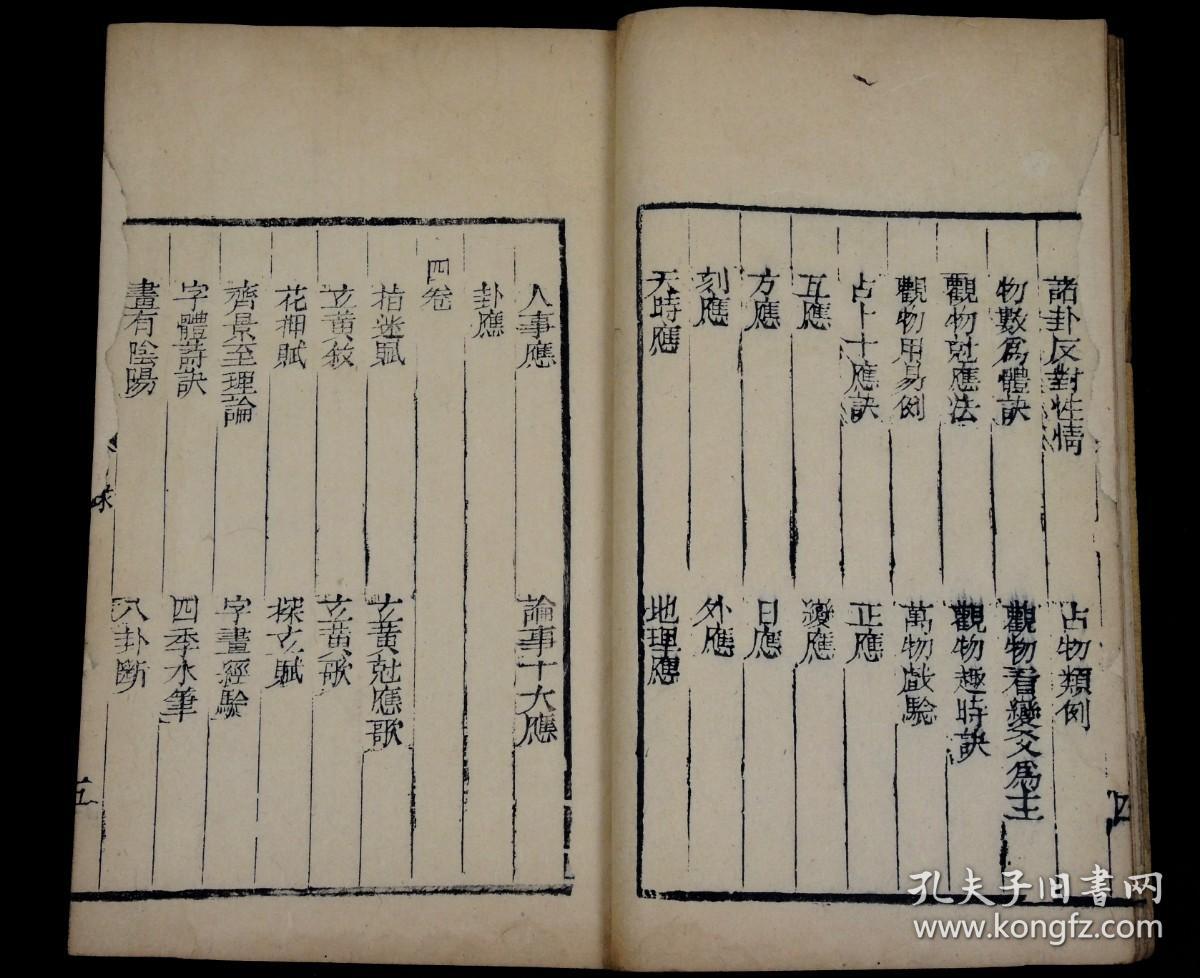 諸卦反對性情 占物類例
物數爲體訣 觀物看變爻爲主
觀物尅應法 觀物趣時訣
觀物用易例 萬物戲驗
占卜十應訣 正應
互應 變應
方應 日應
刻應 外應
天時應 地理應
人事應 論事十大應
卦應
四卷
指迷賦 玄黃尅應歌
玄黃敘 玄黃歌
花押賦 探玄賦
齊景至理論 字畫經驗
字體詩訣 四季水筆
畫有陰陽 八卦斷
五
孔夫子旧書网
www.kongfz.com